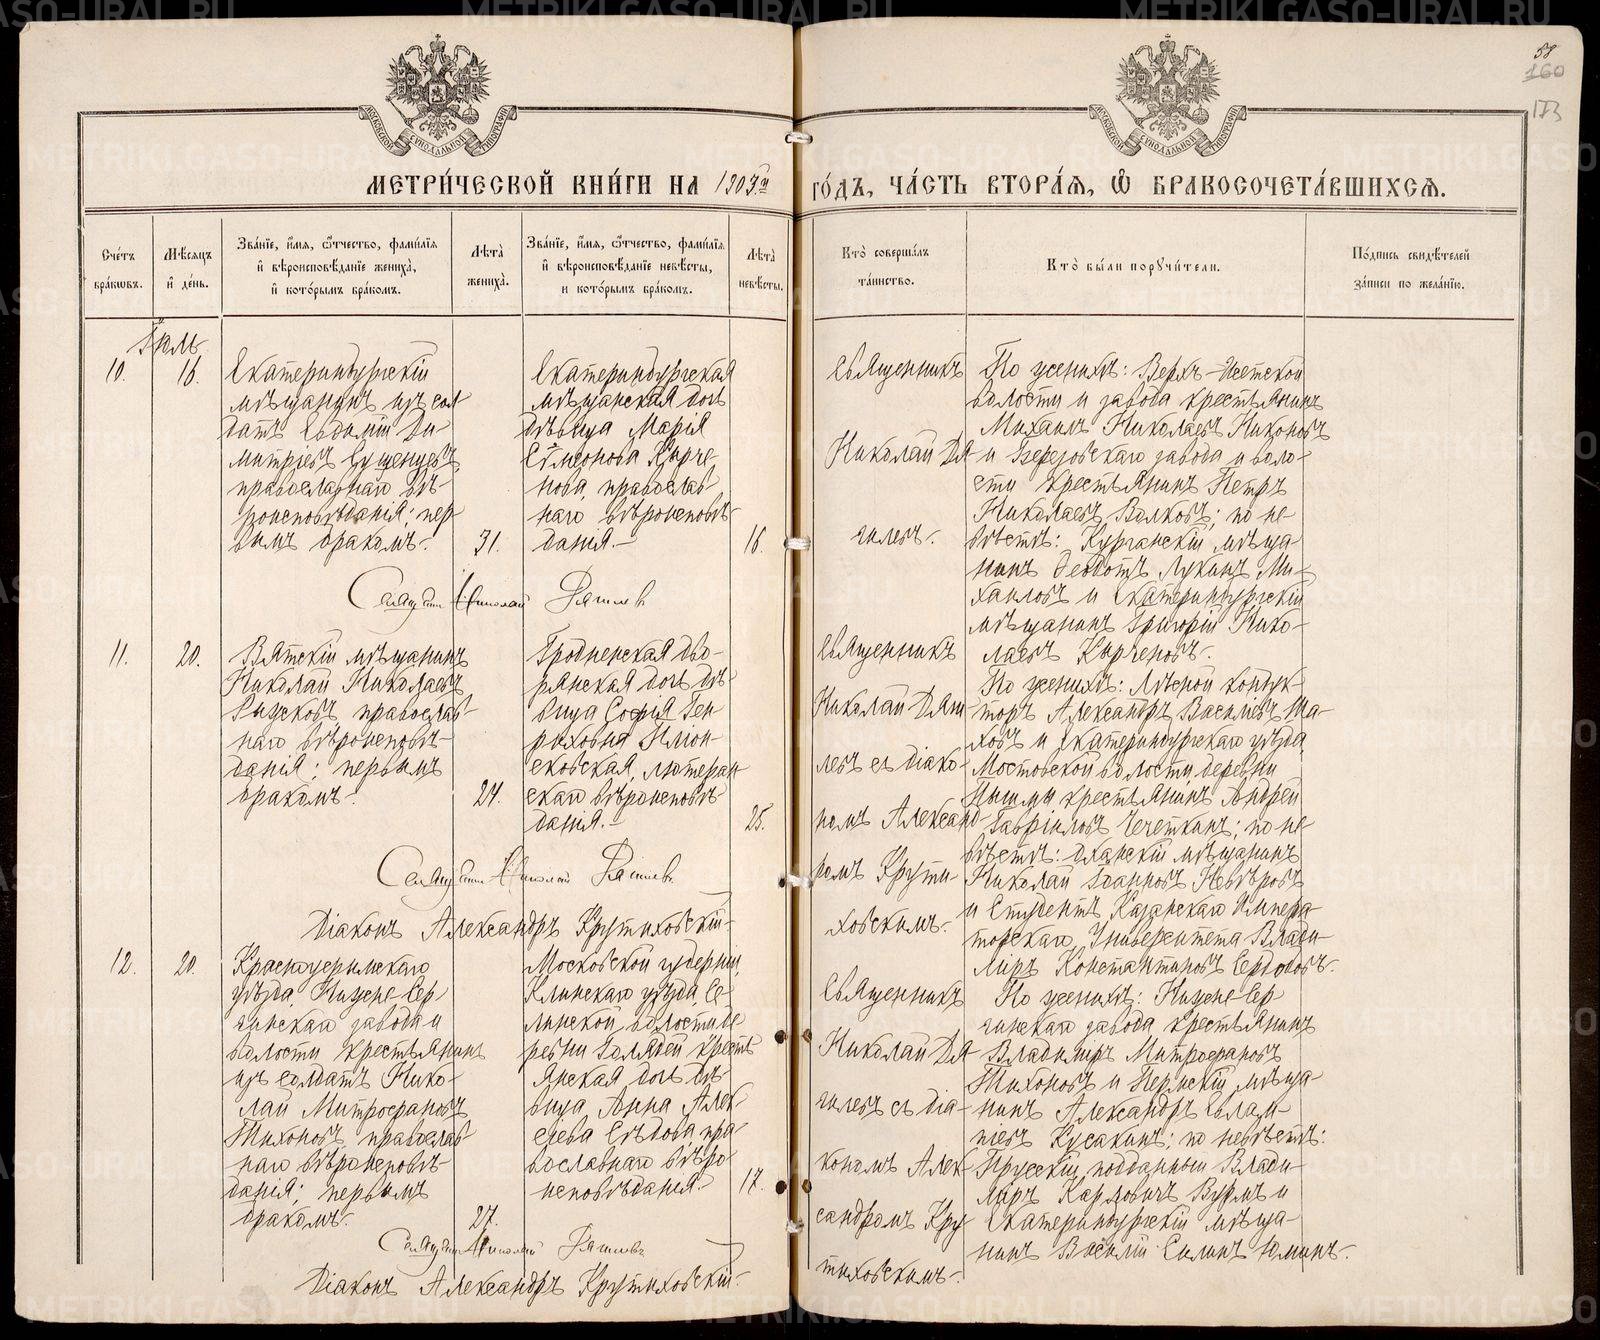 58
160
173
МОСКОВСКОЙ СѴНОДАЛЬНОЙ ТИПОГРАФІИ
МОСКОВСКОЙ СѴНОДАЛЬНОЙ ТИПОГРАФІИ
МЕТРИ́ЧЕСКОЙ КНИ́ГИ НА 1903й
ГО́ДЪ, ЧА́СТЬ ВТОРА́Я, Ѡ҆ БРАКОСОЧЕТА́ВШИХСЯ.
Сче́тъ бра́кѡвъ.
Мѣ́сяцъ и҆ де́нь.
Зва́нїе, и҆́мя, ѻ҆́тчество, фами́лїя и҆ вѣроисповѣ́данїе жениха̀, и҆ кото́рымъ бра́комъ.
Лѣ́та жениха̀.
Зва́нїе, и҆́мя, ѻ҆́тчество, фами́лїя и҆ вѣроисповѣ́данїе невѣ́сты, и кото́рымъ бра́комъ.
Лѣ́та невѣ́сты.
Кто̀ соверша́лъ та́инство.
Кто̀ бы́ли порꙋчи́тели.
По́дпись свидѣ́телей за́писи по жела́нїю.
Іюль
10.
16.
Екатеринбургскій
мѣщанинъ изъ сол
датъ Евдокій Ди-
митріевъ
православнаго вѣ-
роисповѣданія; пер-
вымъ бракомъ.
31.
Екатеринбургская
мѣщанская дочь
дѣвица Марія
Сѵмеонова Кирче
нова, православ
наго вѣроисповѣ-
данія.
16.
Священникъ
Николай Дя-
гилевъ.
По женихѣ: Верхъ-Исетской
волости и завода крестьянинъ
Михаилъ Николаевъ Никоновъ
и Березовскаго завода и воло-
сти крестьянинъ Петръ
Николаевъ Волковъ; по не-
вѣстѣ: Курганскій мѣща-
нинъ Ѳеодотъ Лукинъ Ми-
хаиловъ и Екатеринбургскій
мѣщанинъ Григорій Нико-
лаевъ Кирченовъ.
Священникъ Николай Дягилевъ
11.
20.
Вятскій мѣщанинъ
Николай Николаевъ
православ-
наго вѣроисповѣ-
данія; первымъ
бракомъ.
24.
Гродненская дво-
рянская дочь дѣ-
вица Софія Ген
риховна
лютеран
скаго вѣроисповѣ
данія.
25.
Священникъ
Николай Дяги
левъ съ діако-
номъ Александ-
ромъ Крути-
ховскимъ.
По женихѣ: Лѣсной кондук-
торъ Александръ Васильевъ
и Екатеринбургскаго уѣзда
Мостовской волости деревни
Пышмы крестьянинъ Андрей
Гавріиловъ Чечеткинъ; по не-
вѣстѣ: Оханскій мѣщанинъ
Николай Іоанновъ Невѣровъ
и Студентъ Казанскаго Импера-
торскаго Университета Влади-
міръ Константиновъ
Священникъ Николай Дягилевъ
Діаконъ Александръ Крутиховскій
12.
20.
Красноуфимскаго
уѣзда, Нижне-Сер-
гинскаго завода и
волости крестьянинъ
изъ солдатъ Нико-
лай Митрофановъ
Тихоновъ православ
наго вѣроисповѣ-
данія; первымъ
бракомъ.
27.
Московской губерніи,
Клинскаго уѣзда, Се-
линской волости де
ревни Голядей крестѣ
янская дочь дѣ-
вица Анна Алек-
сіева Сѣдова пра-
вославнаго вѣро-
исповѣданія.
17.
Священникъ
Николай Дя-
гилевъ съ діа-
кономъ Алек-
сандромъ Кру-
тиховскимъ.
По женихѣ: Нижне-Сер
гинскаго завода крестьянинъ
Владиміръ Митрофановъ
Тихоновъ и Пермскій мѣща-
нинъ Александръ Евлам-
піевъ Кусакинъ; по невѣстѣ:
Прусскій подданный Влади-
міръ Карловичъ Вурмъ и
Екатеринбургскій мѣща-
нинъ Василій Силинъ Юминъ.
Священникъ Николай Дягилевъ
Діаконъ Александръ Крутиховскій
METRIKI.GASO-URAL.RU